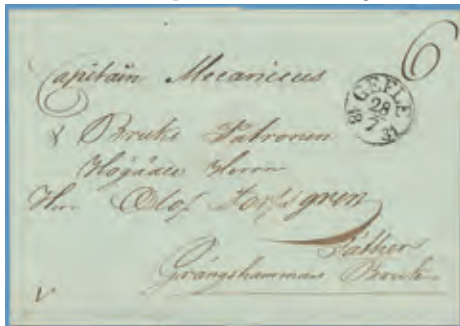 6
Capitain Mecanicus
GEFLE
28
7
& Bruks Patronen
Högädle Herrn
Herr Olof Forsgren
Säther
Grängshammars Bruk